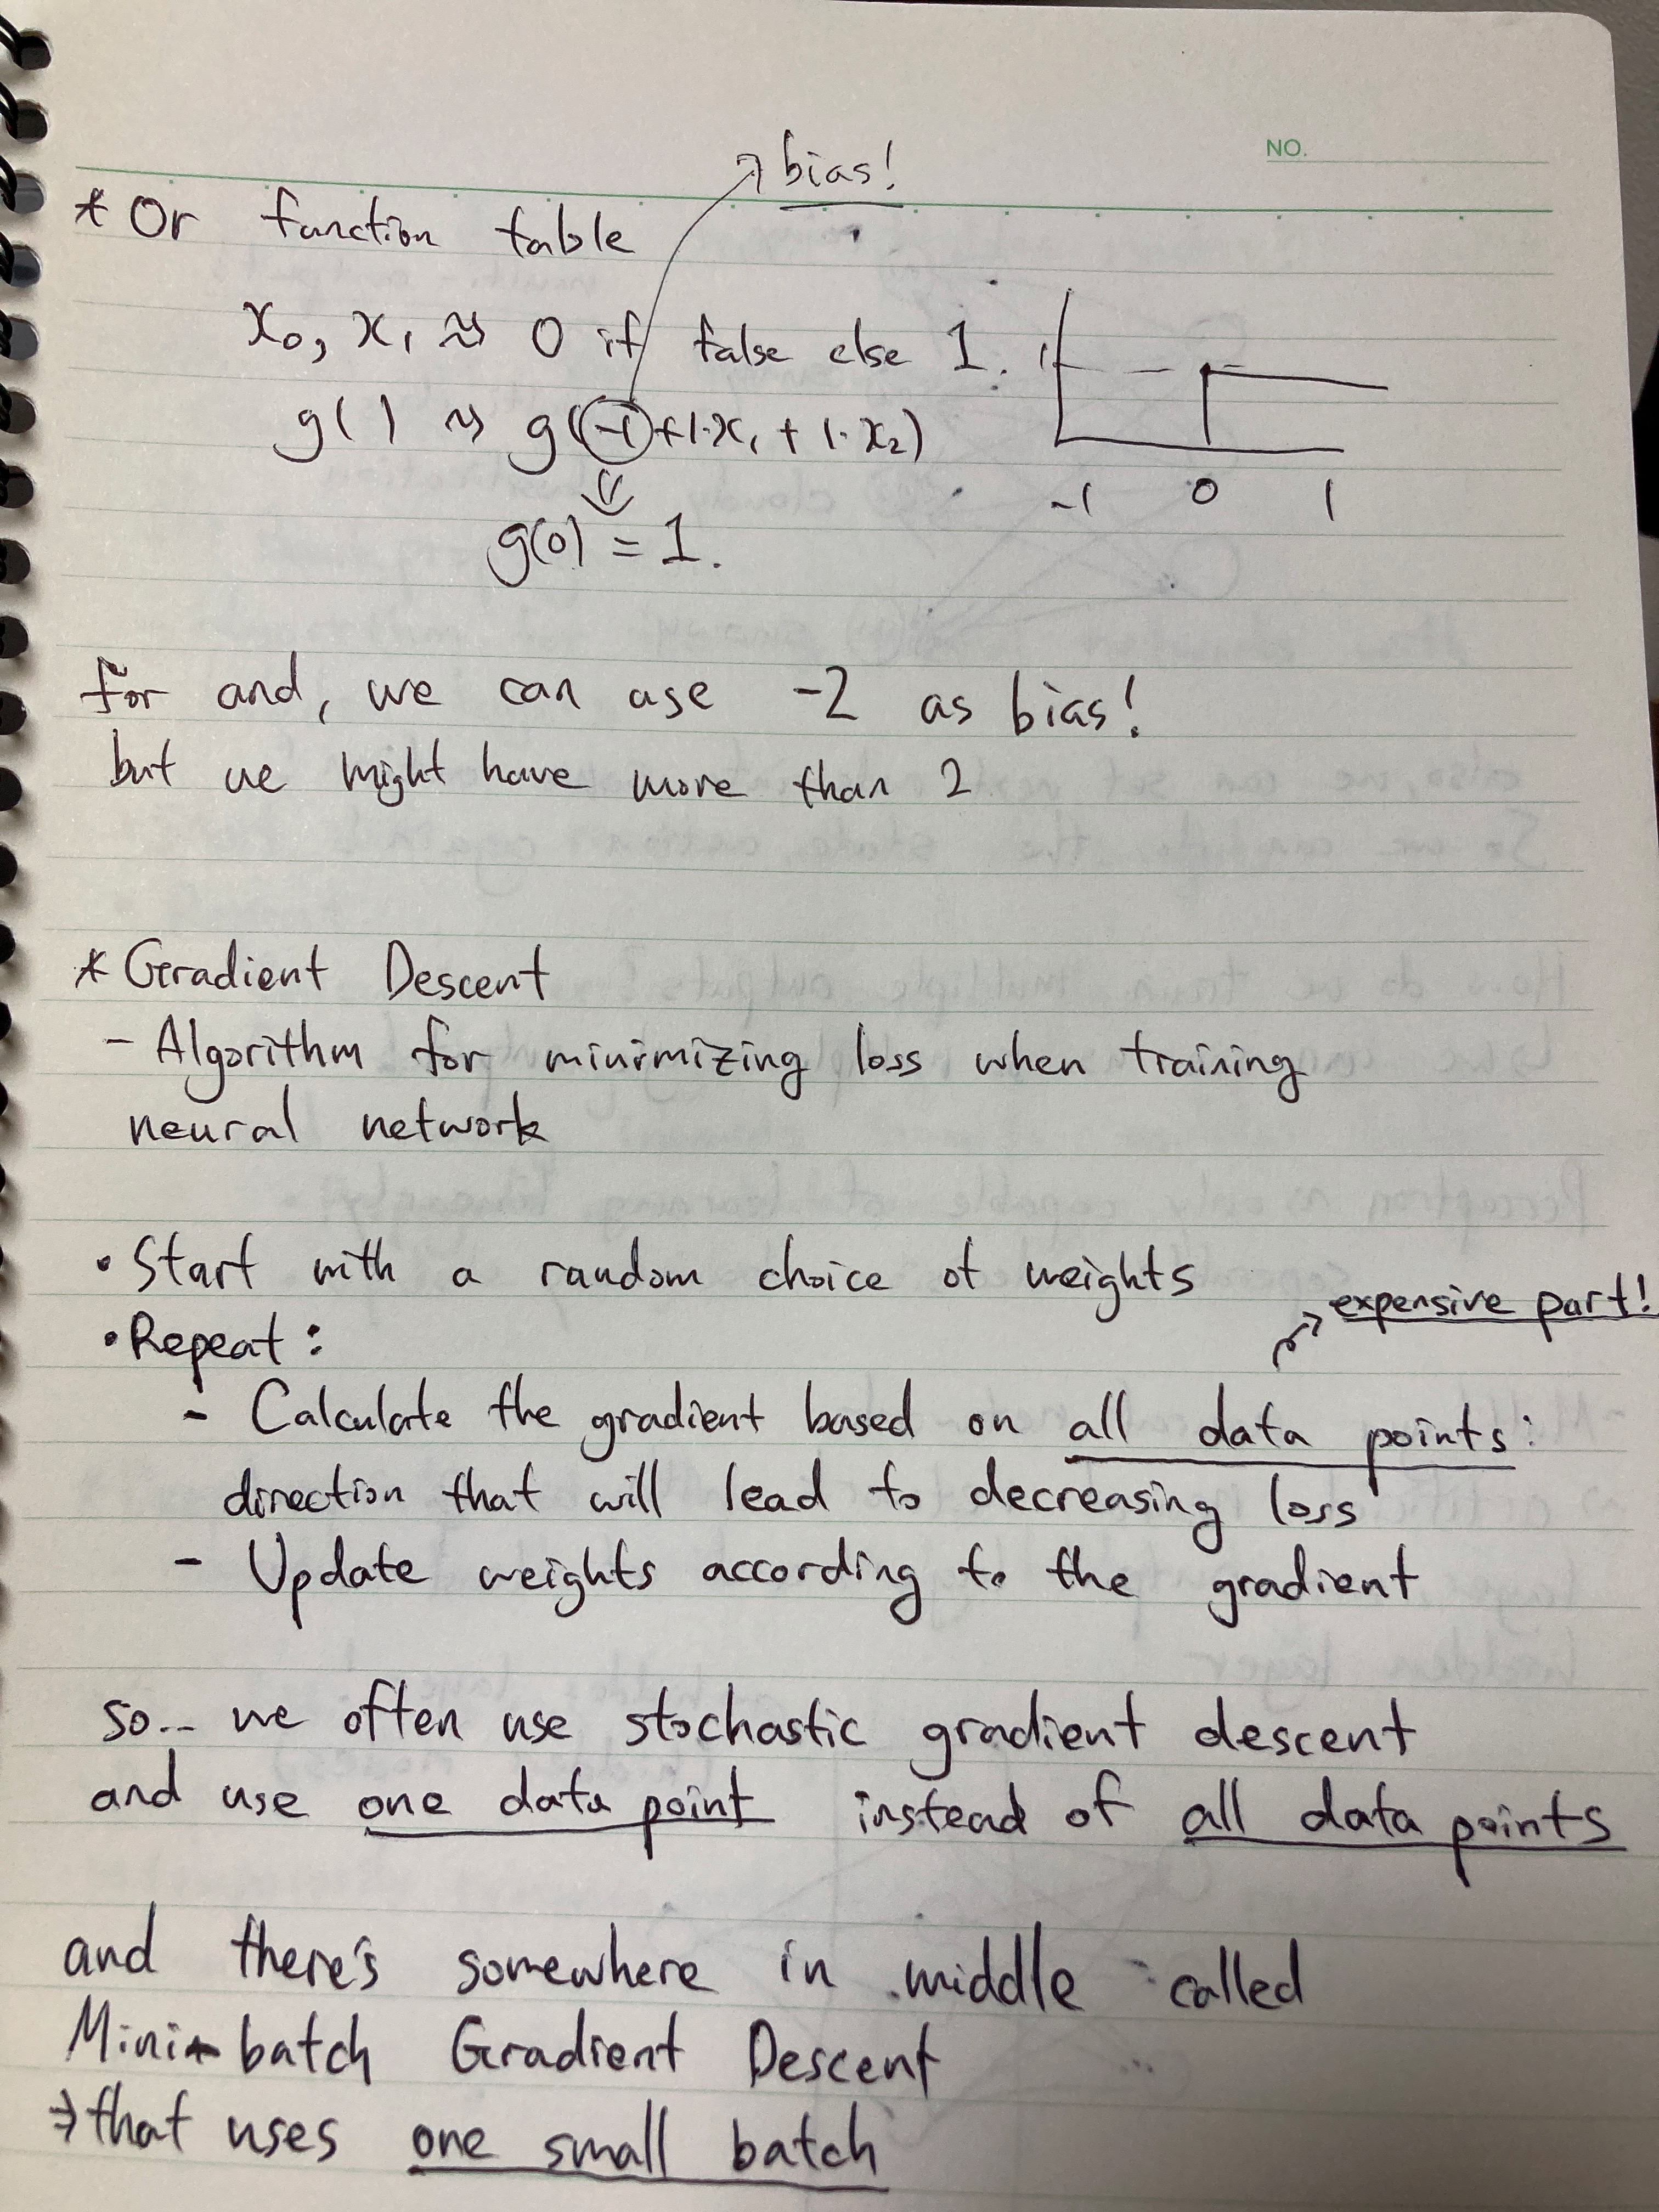 NO.
bias!
* Or function table
x₀, x₁ ≈> 0 if false else 1.
g( ) ~> g(-1+1·x₁ + 1·x₂)
g(0) = 1.
1
-1 0 1
for and, we can use -2 as bias!
but we might have more than 2
* Gradient Descent
- Algorithm for minimizing loss when training
neural network
• Start with a random choice of weights
expensive part!
• Repeat:
- Calculate the gradient based on all data points:
direction that will lead to decreasing loss
- Update weights according to the gradient
so.. we often use stochastic gradient descent
and use one data point instead of all data points
and there's somewhere in middle called
Mini-batch Gradient Descent
⇒ that uses one small batch